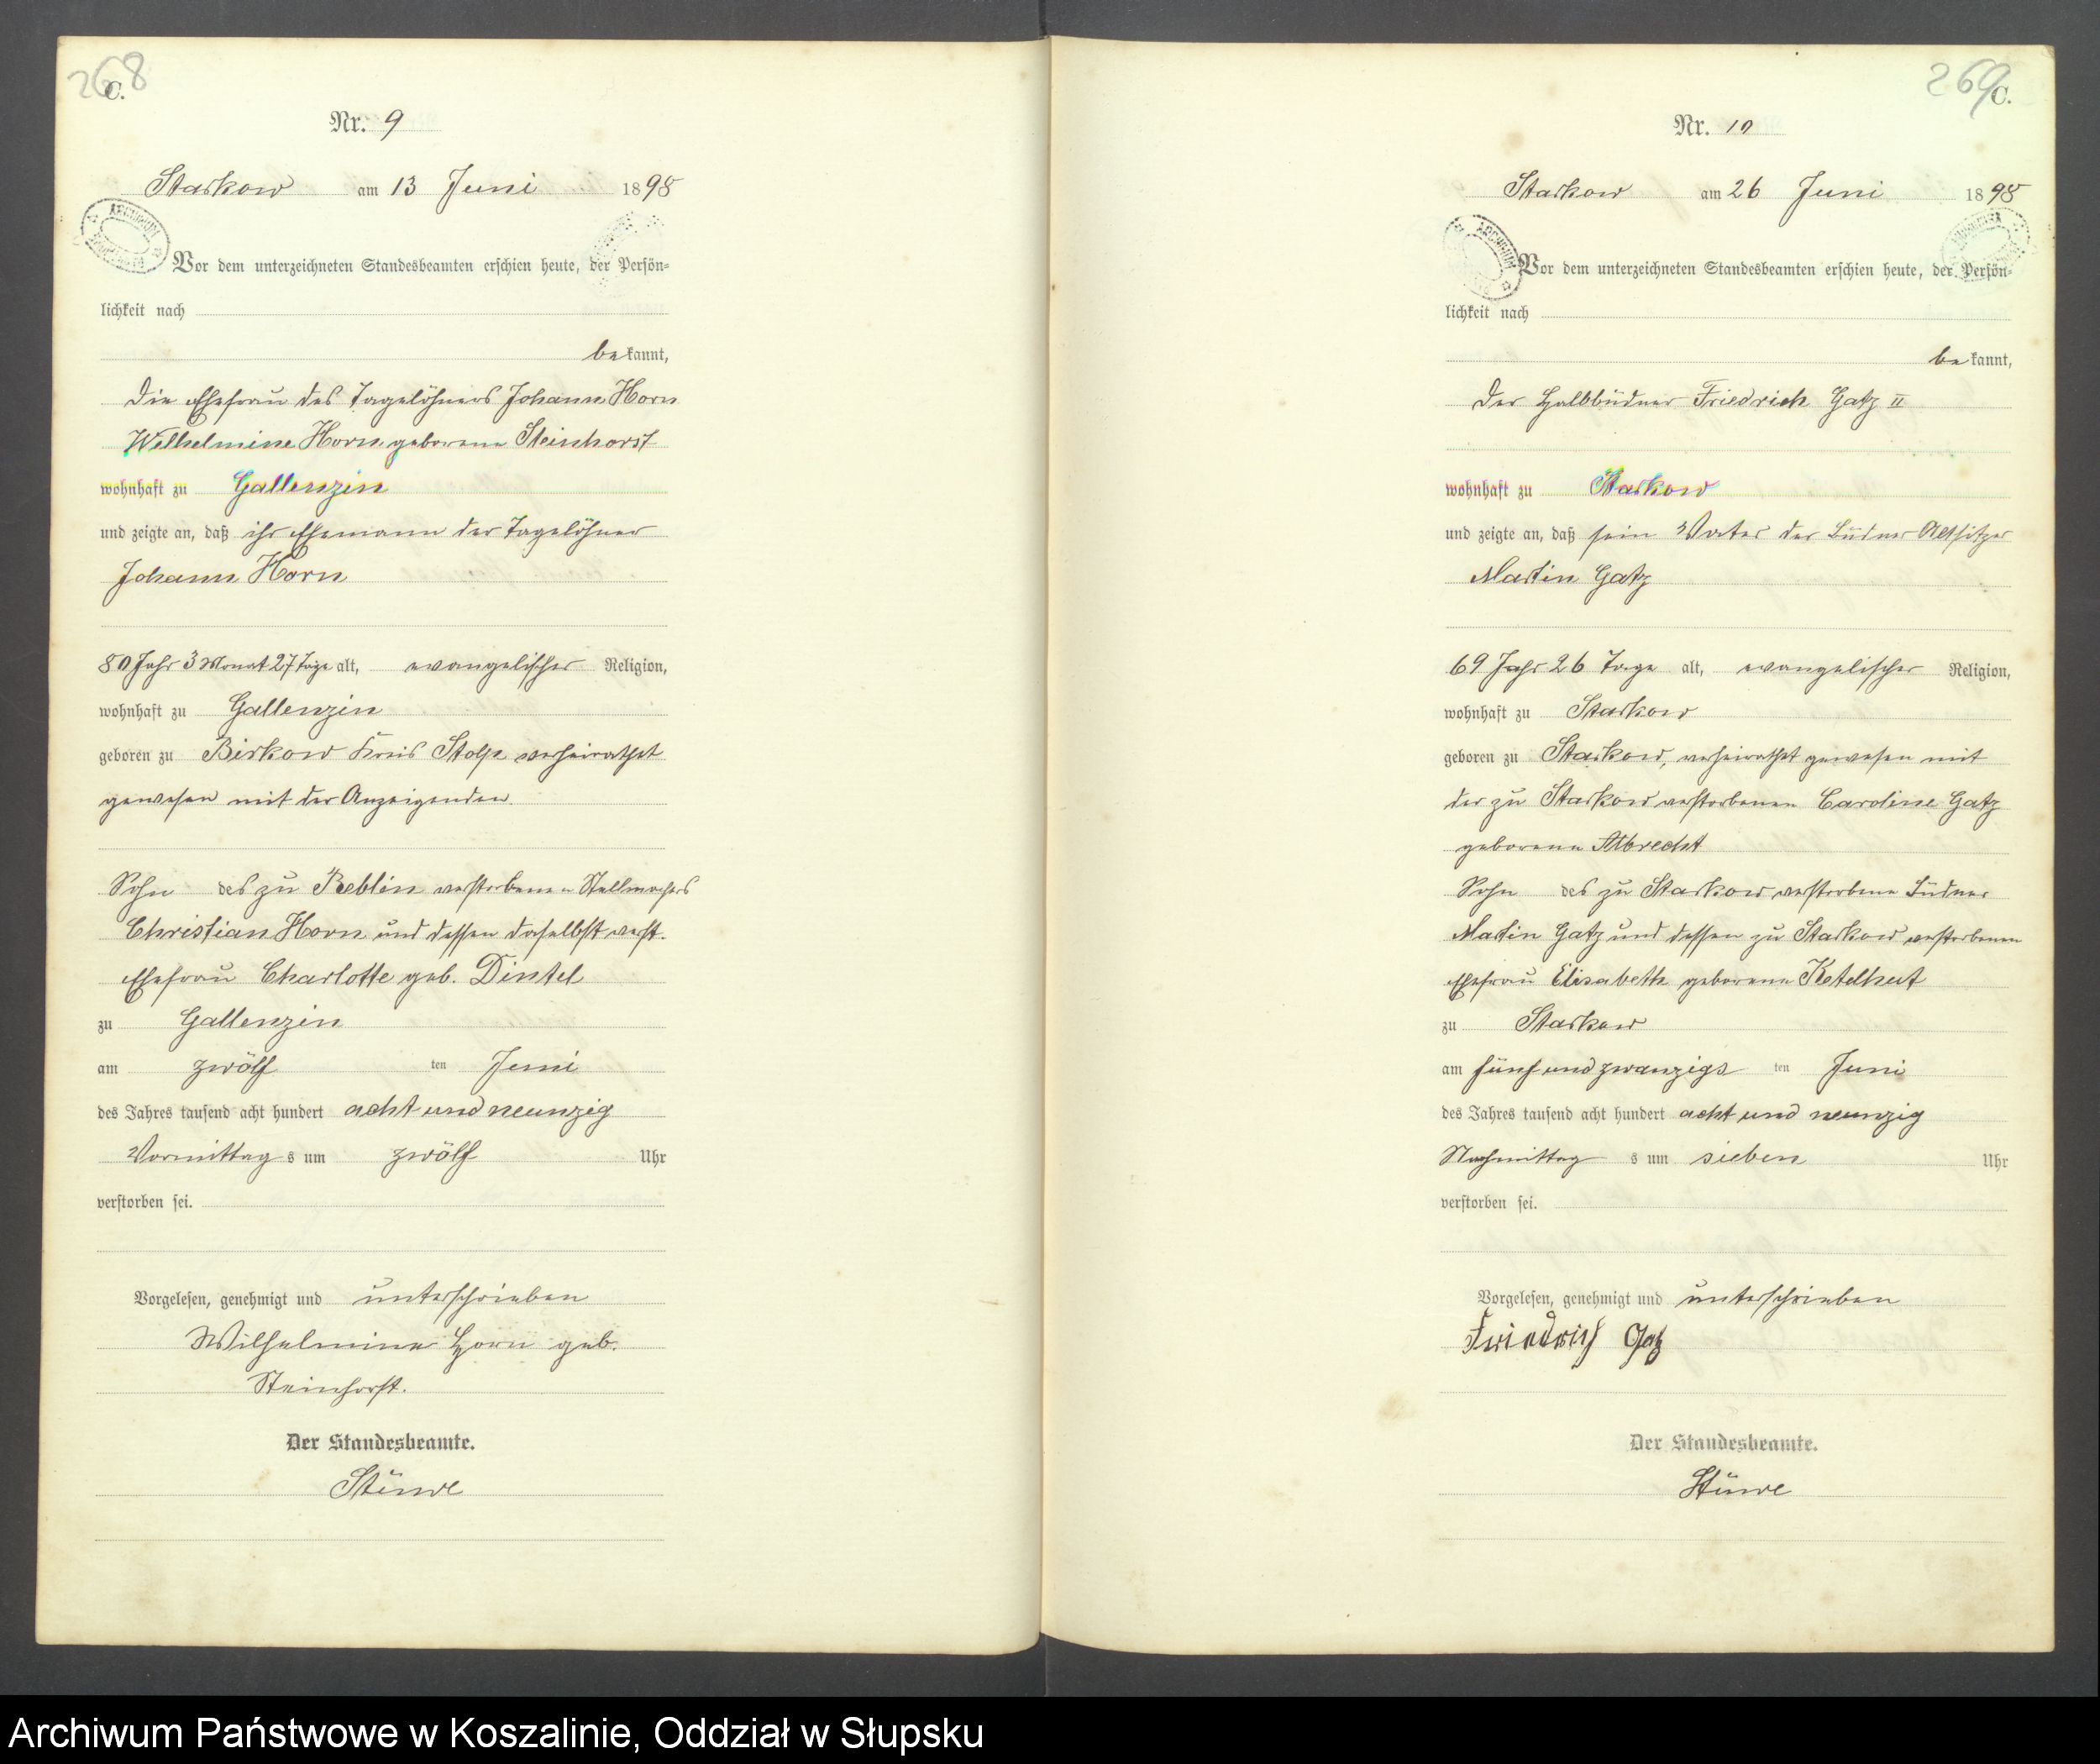 268
C.
Nr. 9
Starkow am 13 Juni 1898
Vor dem unterzeichneten Standesbeamten erschien heute, der Persön-
lichkeit nach
be kannt,
die Ehefrau des Tagelöhners Johann Horn
Wilhelmine Horn geborene Steinhorst
wohnhaft zu Gallenzin
und zeigte an, daß ihr Ehemann der Tagelöhner
Johann Horn
80 Jahr 3 Monat 27 Tage alt, evangelischer Religion,
wohnhaft zu Gallenzin
geboren zu Birkow Kreis Stolp verheirathet
gewesen mit der Anzeigenden
Sohn des zu Reblin verstorbenen Stellmachers
Christian Horn und dessen daselbst verst.
Ehefrau Charlotte geb. Dintel
zu Gallenzin
am zwölf ten Juni
des Jahres tausend acht hundert acht und neunzig
Vormittag s um zwölf Uhr
verstorben sei.
Vorgelesen, genehmigt und unterschrieben
Wilhelmine Horn geb.
Steinhorst.
Der Standesbeamte.
Stüwe
269
C.
Nr. 10
Starkow am 26 Juni 1898
Vor dem unterzeichneten Standesbeamten erschien heute, der Persön-
lichkeit nach
be kannt,
der Halbbüdner Friedrich Gatz II
wohnhaft zu Starkow
und zeigte an, daß sein Vater der Büdner Altsitzer
Martin Gatz
69 Jahr 26 Tage alt, evangelischer Religion,
wohnhaft zu Starkow
geboren zu Starkow, verheirathet gewesen mit
der zu Starkow verstorbenen Caroline Gatz
geborene Albrecht
Sohn des zu Starkow verstorbene Büdner
Martin Gatz und dessen zu Starkow verstorbenen
Ehefrau Elisabeth geborene Ketelhut
zu Starkow
am fünf und zwanzigs ten Juni
des Jahres tausend acht hundert acht und neunzig
Nachmittag s um sieben Uhr
verstorben sei.
Vorgelesen, genehmigt und unterschrieben
Friedrich Gatz
Der Standesbeamte.
Stüwe
Archiwum Państwowe w Koszalinie, Oddział w Słupsku